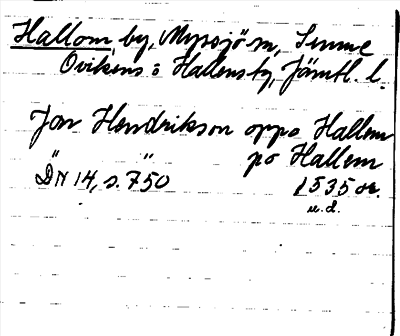 Hallom, by, Myssjö sn, Sunne
Ovikens o Hallens tg, Jämtl. l.
Jon Hendrikson oppa Hallem
" " po Hallem
DN 14, s. 750 1535 or.
u.d.